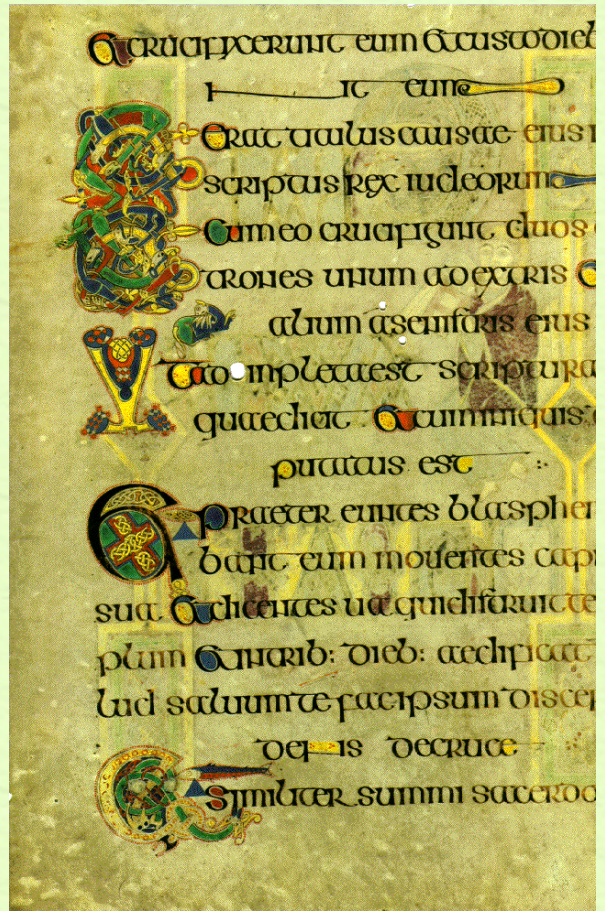 Et crucifixerunt eum Et custodieb
nt eum
Et erat titulus causae eius i
scriptus rex iudeorum
Et cum eo crucifigunt duos
trones unum adextris E
alium asenistris eius
inpleta est scriptura
quae dicit Et cum iniquis
putatus est
Et praeter euntes blasphem
bant eum mouentes capi
sua Et dicentes ua qui distruit te
plum Et in trib: dieb: aedificat
lud saluum te fac ipsum discen
dens decruce
similiter summi sacerdo